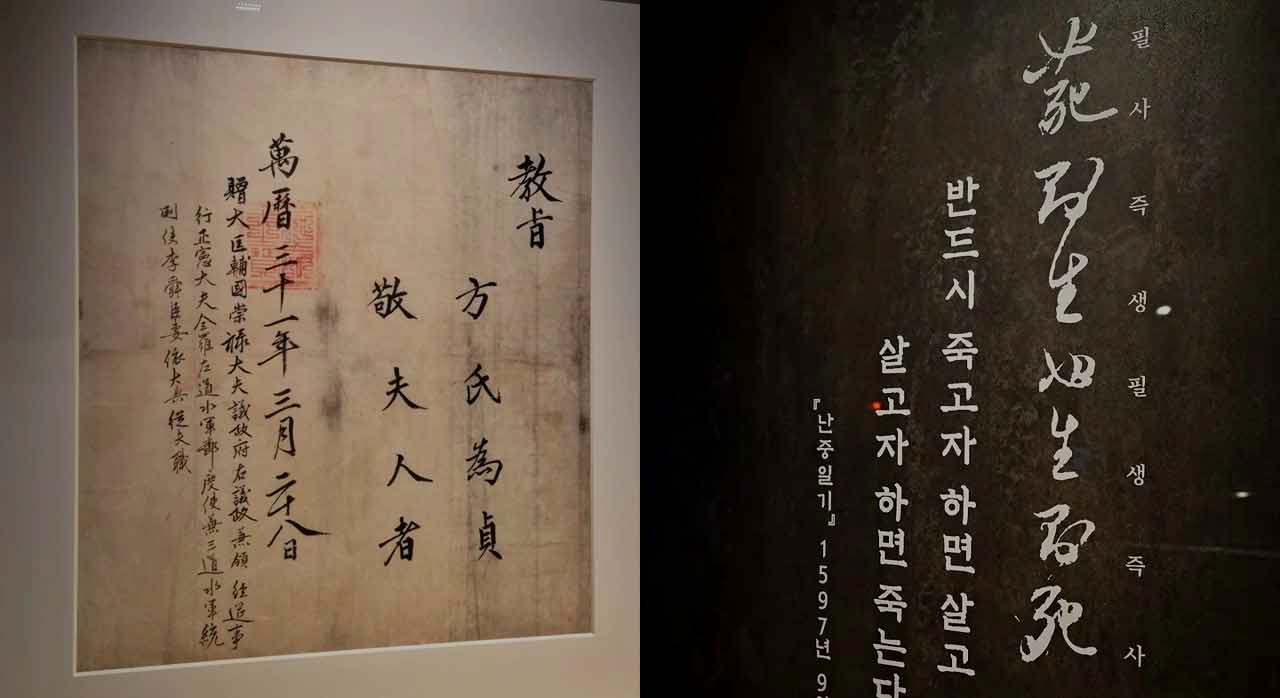 教旨
方氏為貞
敬夫人者
萬曆三十一年三月二十八日
贈大匡輔國崇祿大夫議政府右議政兼領經筵事
行正憲大夫全羅左道水軍節度使兼三道水軍統
制使李舜臣妻依大典從夫職
필사즉생필생즉사
必死則生必生則死
반드시 죽고자 하면 살고
살고자 하면 죽는다
『난중일기』 1597년 9